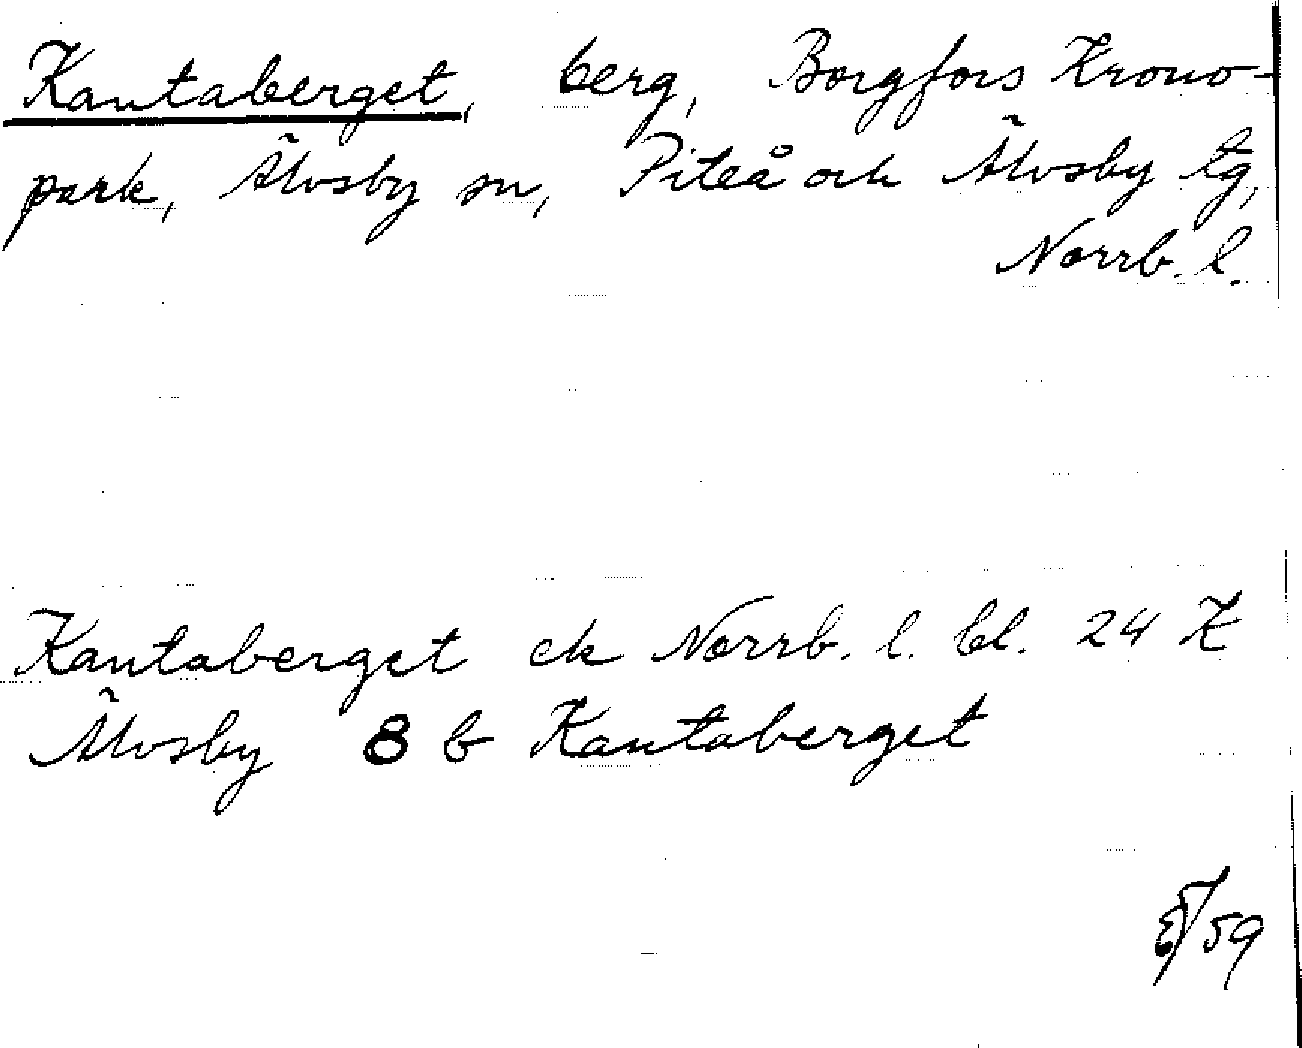 Kantaberget, berg, Borgfors Krono-
park, Älvsby sn, Piteå och Älvsby tg,
Norrb. l.
Kantaberget ek Norrb. l. bl. 24 K
Älvsby 8 b Kantaberget
59